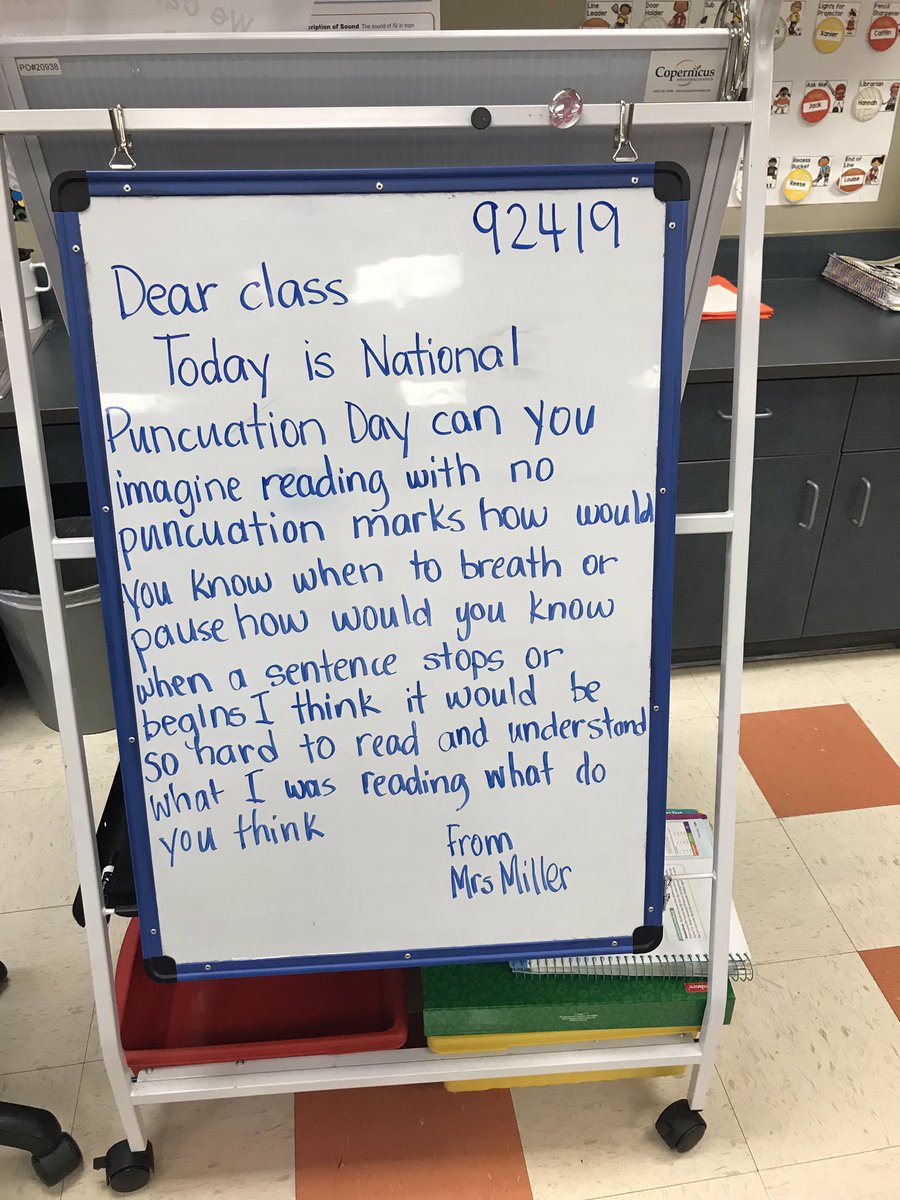 we can
cription of Sound The sound of /t/ in train
Line Leader
Door Holder
Sub
Lights for Projector
Pencil Sharpener
Xanier
Caitlin
PO#20938
Copernicus
Ask Me
Librarian
Jack
Hannah
Recess Bucket
End of Line
Reese
Louise
92419
Dear class
Today is National
Puncuation Day can you
imagine reading with no
puncuation marks how would
you know when to breath or
pause how would you know
when a sentence stops or
begins I think it would be
so hard to read and understand
what I was reading what do
you think
From
Mrs Miller